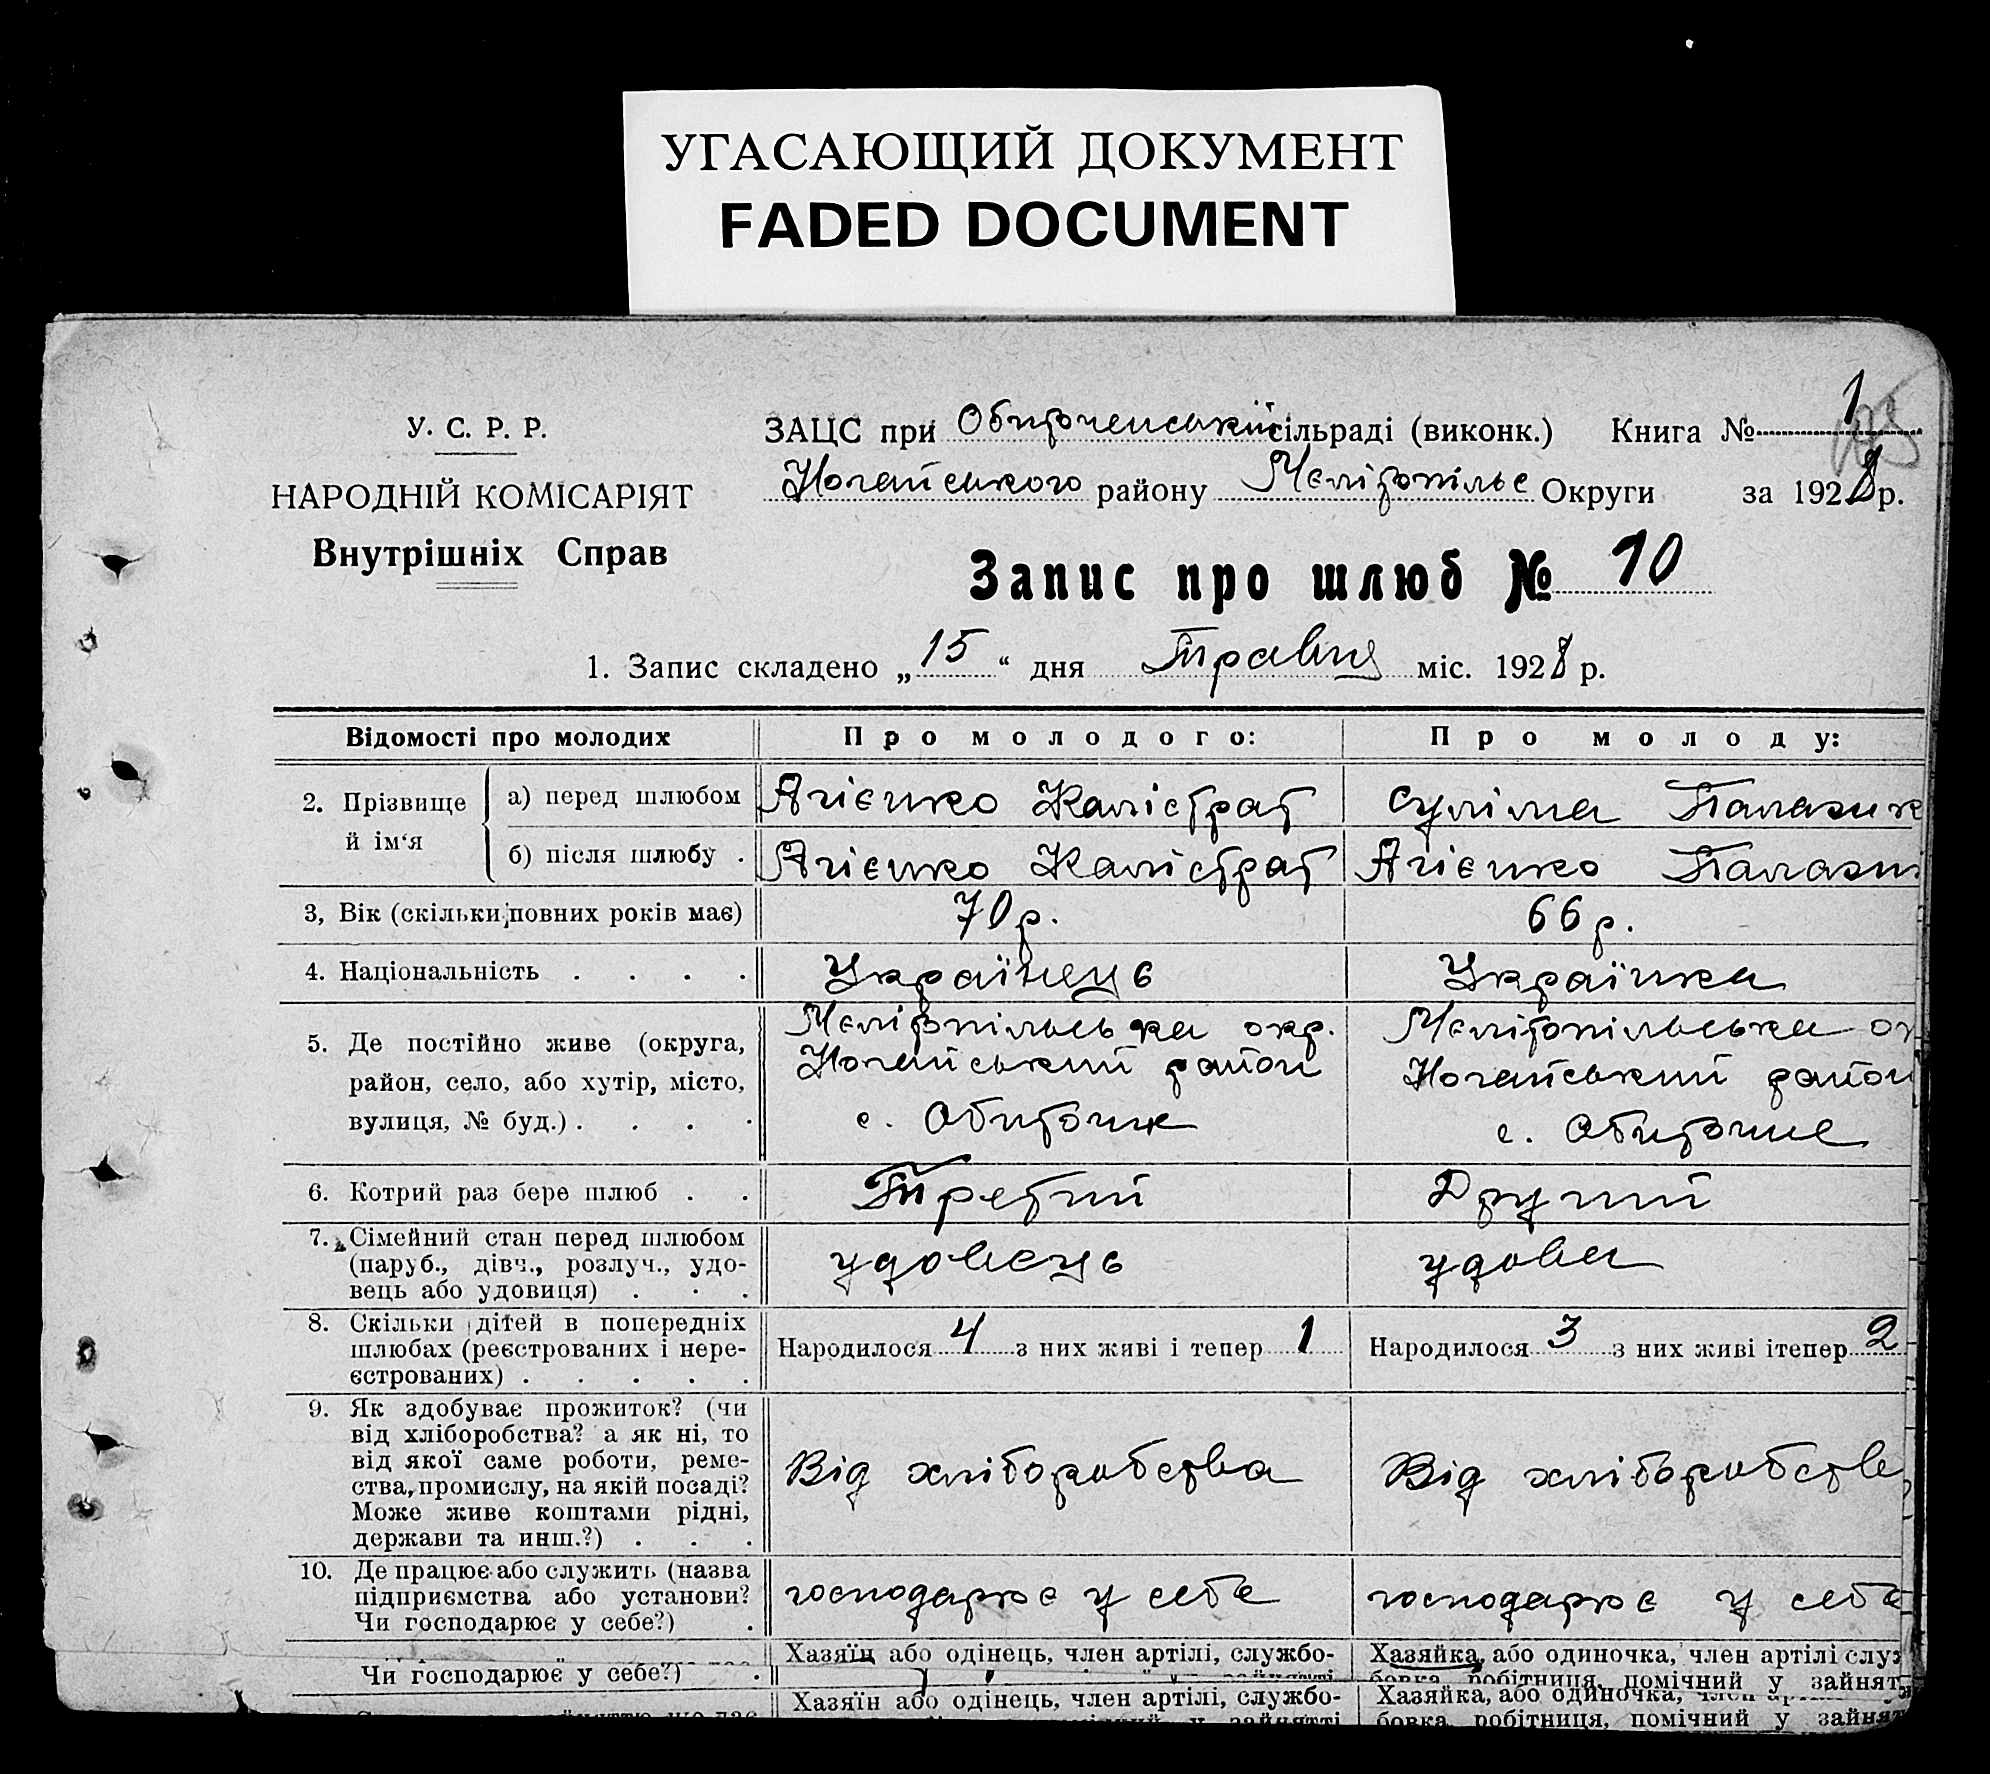 УГАСАЮЩИЙ ДОКУМЕНТ
FADED DOCUMENT
У. С. Р. Р.
НАРОДНІЙ КОМІСАРІЯТ
Внутрішніх Справ
ЗАЦС при Обиточенській сільраді (виконк.) Книга № 1
Ногайського району Мелітопільс Округи за 1928 р.
Запис про шлюб № 10
1. Запис складено „15“ дня Травня міс. 1928 р.
Відомості про молодих Про молодого: Про молоду:
2. Прізвище й ім‘я
а) перед шлюбом Агієнко Калістрат Суліма Палажк
б) після шлюбу . Агієнко Калістрат Агієнко Палаж
3, Вік (скільки повних років має) 70 р. 66 р.
4. Національність . . . . Українець Українка
5. Де постійно живе (округа,
район, село, або хутір, місто,
вулиця, № буд.) . . . .
Мелітопільська окр.
Ногайський район
с. Обиточне
Мелітопільська ок
Ногайський район
с. Обиточне
6. Котрий раз бере шлюб . . Третий Другий
7. Сімейний стан перед шлюбом
(паруб., дівч., розлуч., удо-
вець або удовиця) . . .
удовець
удова
8. Скільки дітей в попередніх
шлюбах (реєстрованих і нере-
єстрованих) . . . . .
Народилося 4 з них живі і тепер 1
Народилося 3 з них живі ітепер 2
9. Як здобуває прожиток? (чи
від хліборобства? а як ні, то
від якої саме роботи, реме-
ства, промислу, на якій посаді?
Може живе коштами рідні,
держави та инш.?) . . .
Від хліборобства
Від хліборобства
10. Де працює або служить (назва
підприємства або установи?
Чи господарює у себе?) .
господарює у себе
господарює у себе
Хазяїн або одінець, член артілі, службо-
Хазяйка, або одиночка, член артілі служ
бовка, робітниця, помічний у зайнят
Чи господарює у себе?) .
Хазяїн або одінець, член артілі, службо-
Хазяйка, або одиночка,
бовка, робітниця, помічний у зайнят